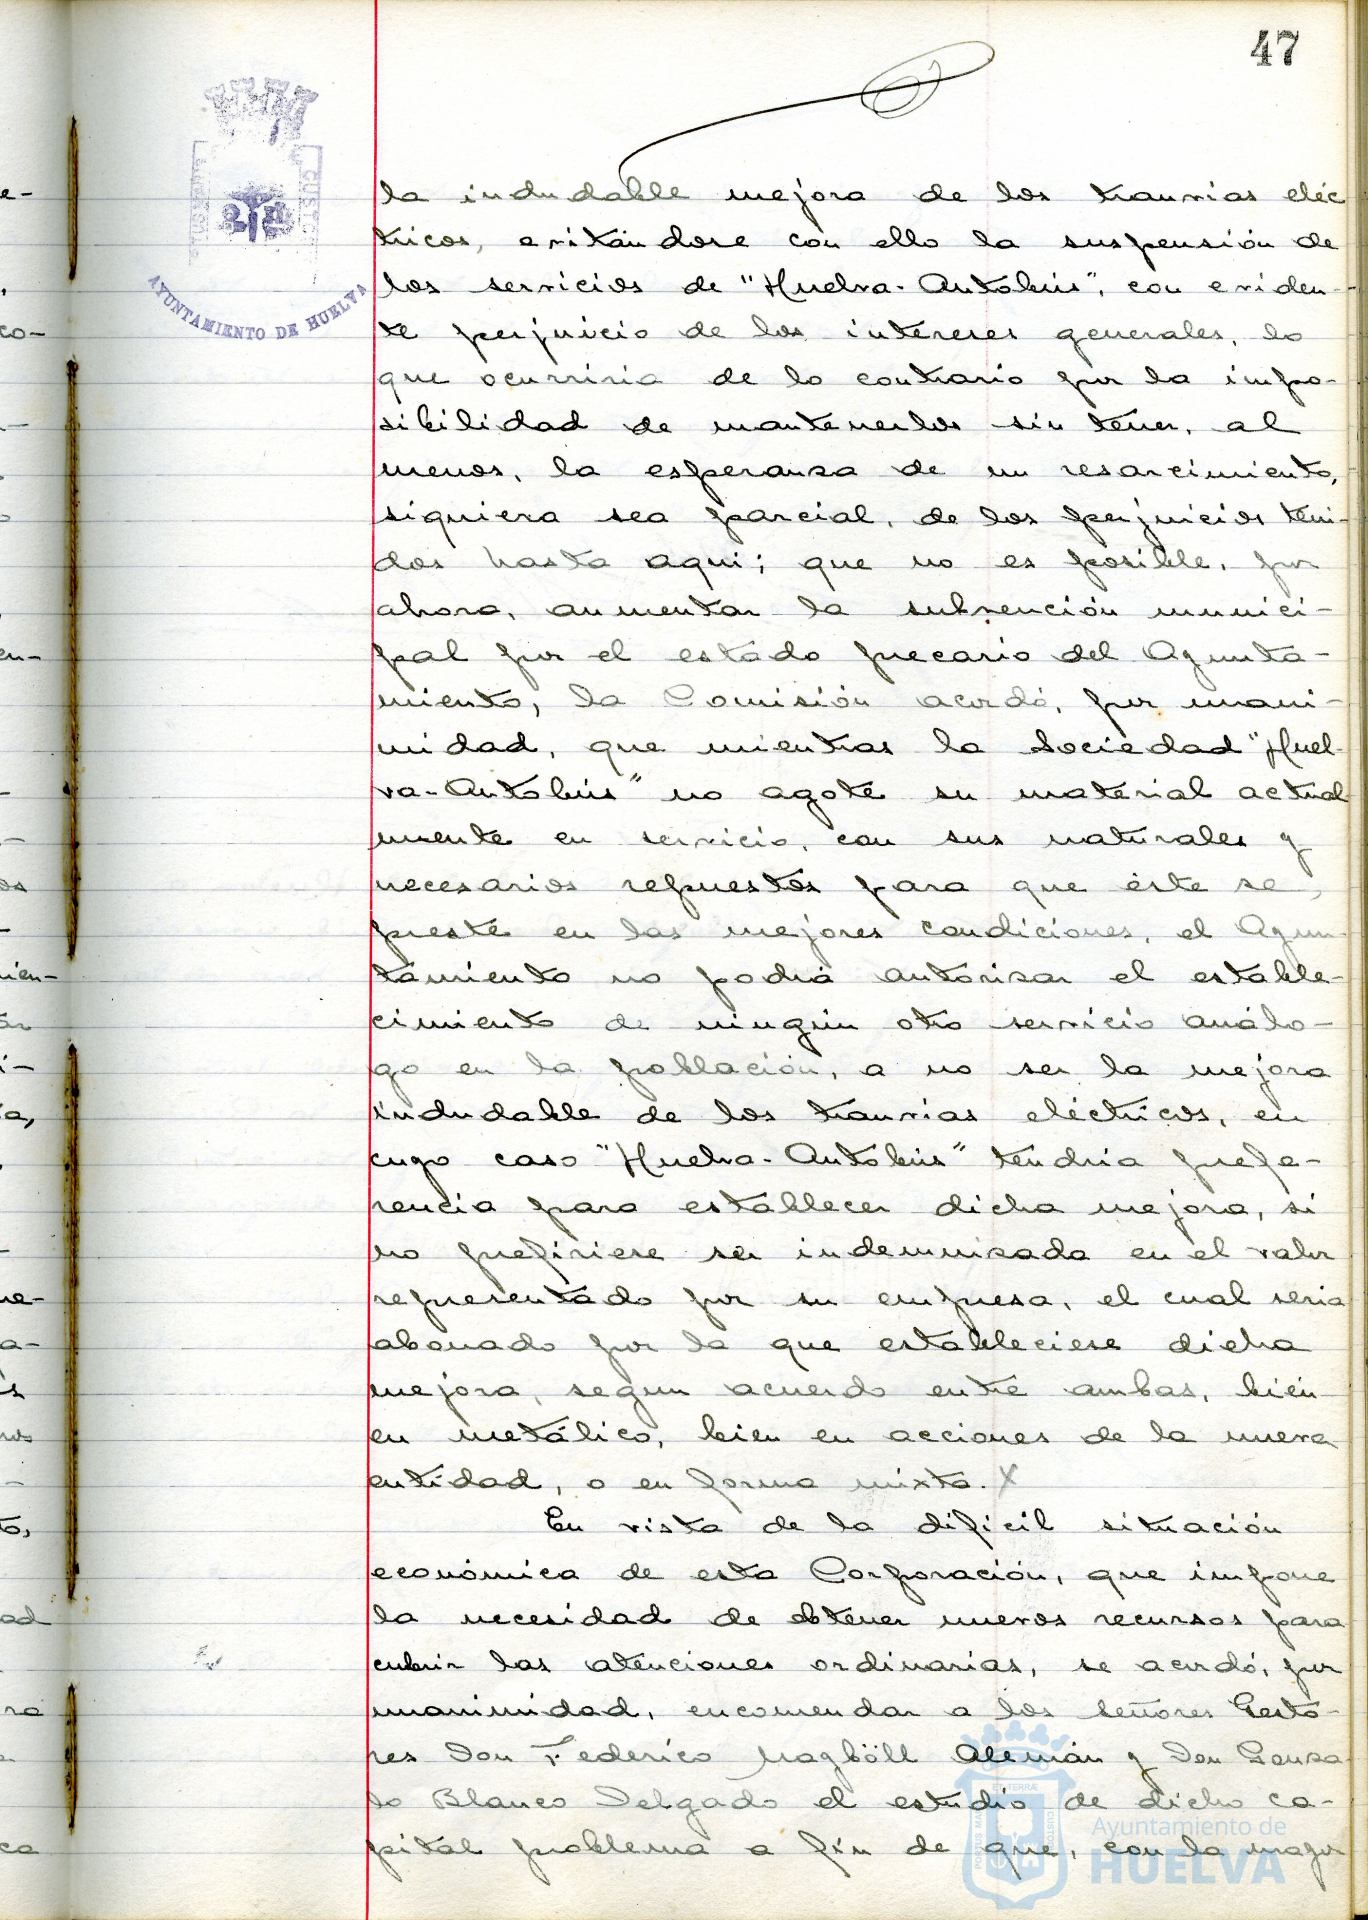 47
AYUNTAMIENTO DE HUELVA
la indudable mejora de los tranvias eléc
tricos, evitándose con ello la suspensión de
los servicios de "Huelva-Autobús", con eviden-
te perjuicio de los intereses generales, lo
que ocurriria de lo contrario por la impo-
sibilidad de mantenerlos sin tener, al
menos, la esperanza de un resarcimiento,
siquiera sea parcial, de los perjuicios teni-
dos hasta aqui; que no es posible, por
ahora, aumentar la subvención munici-
pal por el estado precario del Ayunta-
miento, la Comisión acordó, por unani-
midad, que mientras la Sociedad "Huel-
va-Autobús" no agote su material actual
mente en servicio, con sus naturales y
necesarios repuestos para que éste se
preste en las mejores condiciones, el Ayun-
tamiento no podrá autorizar el estable-
cimiento de ningún otro servicio análo-
go en la población, a no ser la mejora
indudable de los tranvias eléctricos, en
cuyo caso "Huelva-Autobús" tendria prefe-
rencia para establecer dicha mejora, si
no prefiriese ser indemnizada en el valor
representado por su empresa, el cual seria
abonado por la que estableciese dicha
mejora, segun acuerdo entre ambas, bien
en metálico, bien en acciones de la nueva
entidad, o en forma mixta.
En vista de la dificil situación
económica de esta Corporación, que impone
la necesidad de obtener nuevos recursos para
cubrir las atenciones ordinarias, se acordó, por
unanimidad, encomendar a los señores Gesto-
res Don Federico Magböll Alemán y Don Gonza
lo Blanco Delgado el estudio de dicho ca-
pital problema a fin de que, con la mayor
Ayuntamiento de
HUELVA